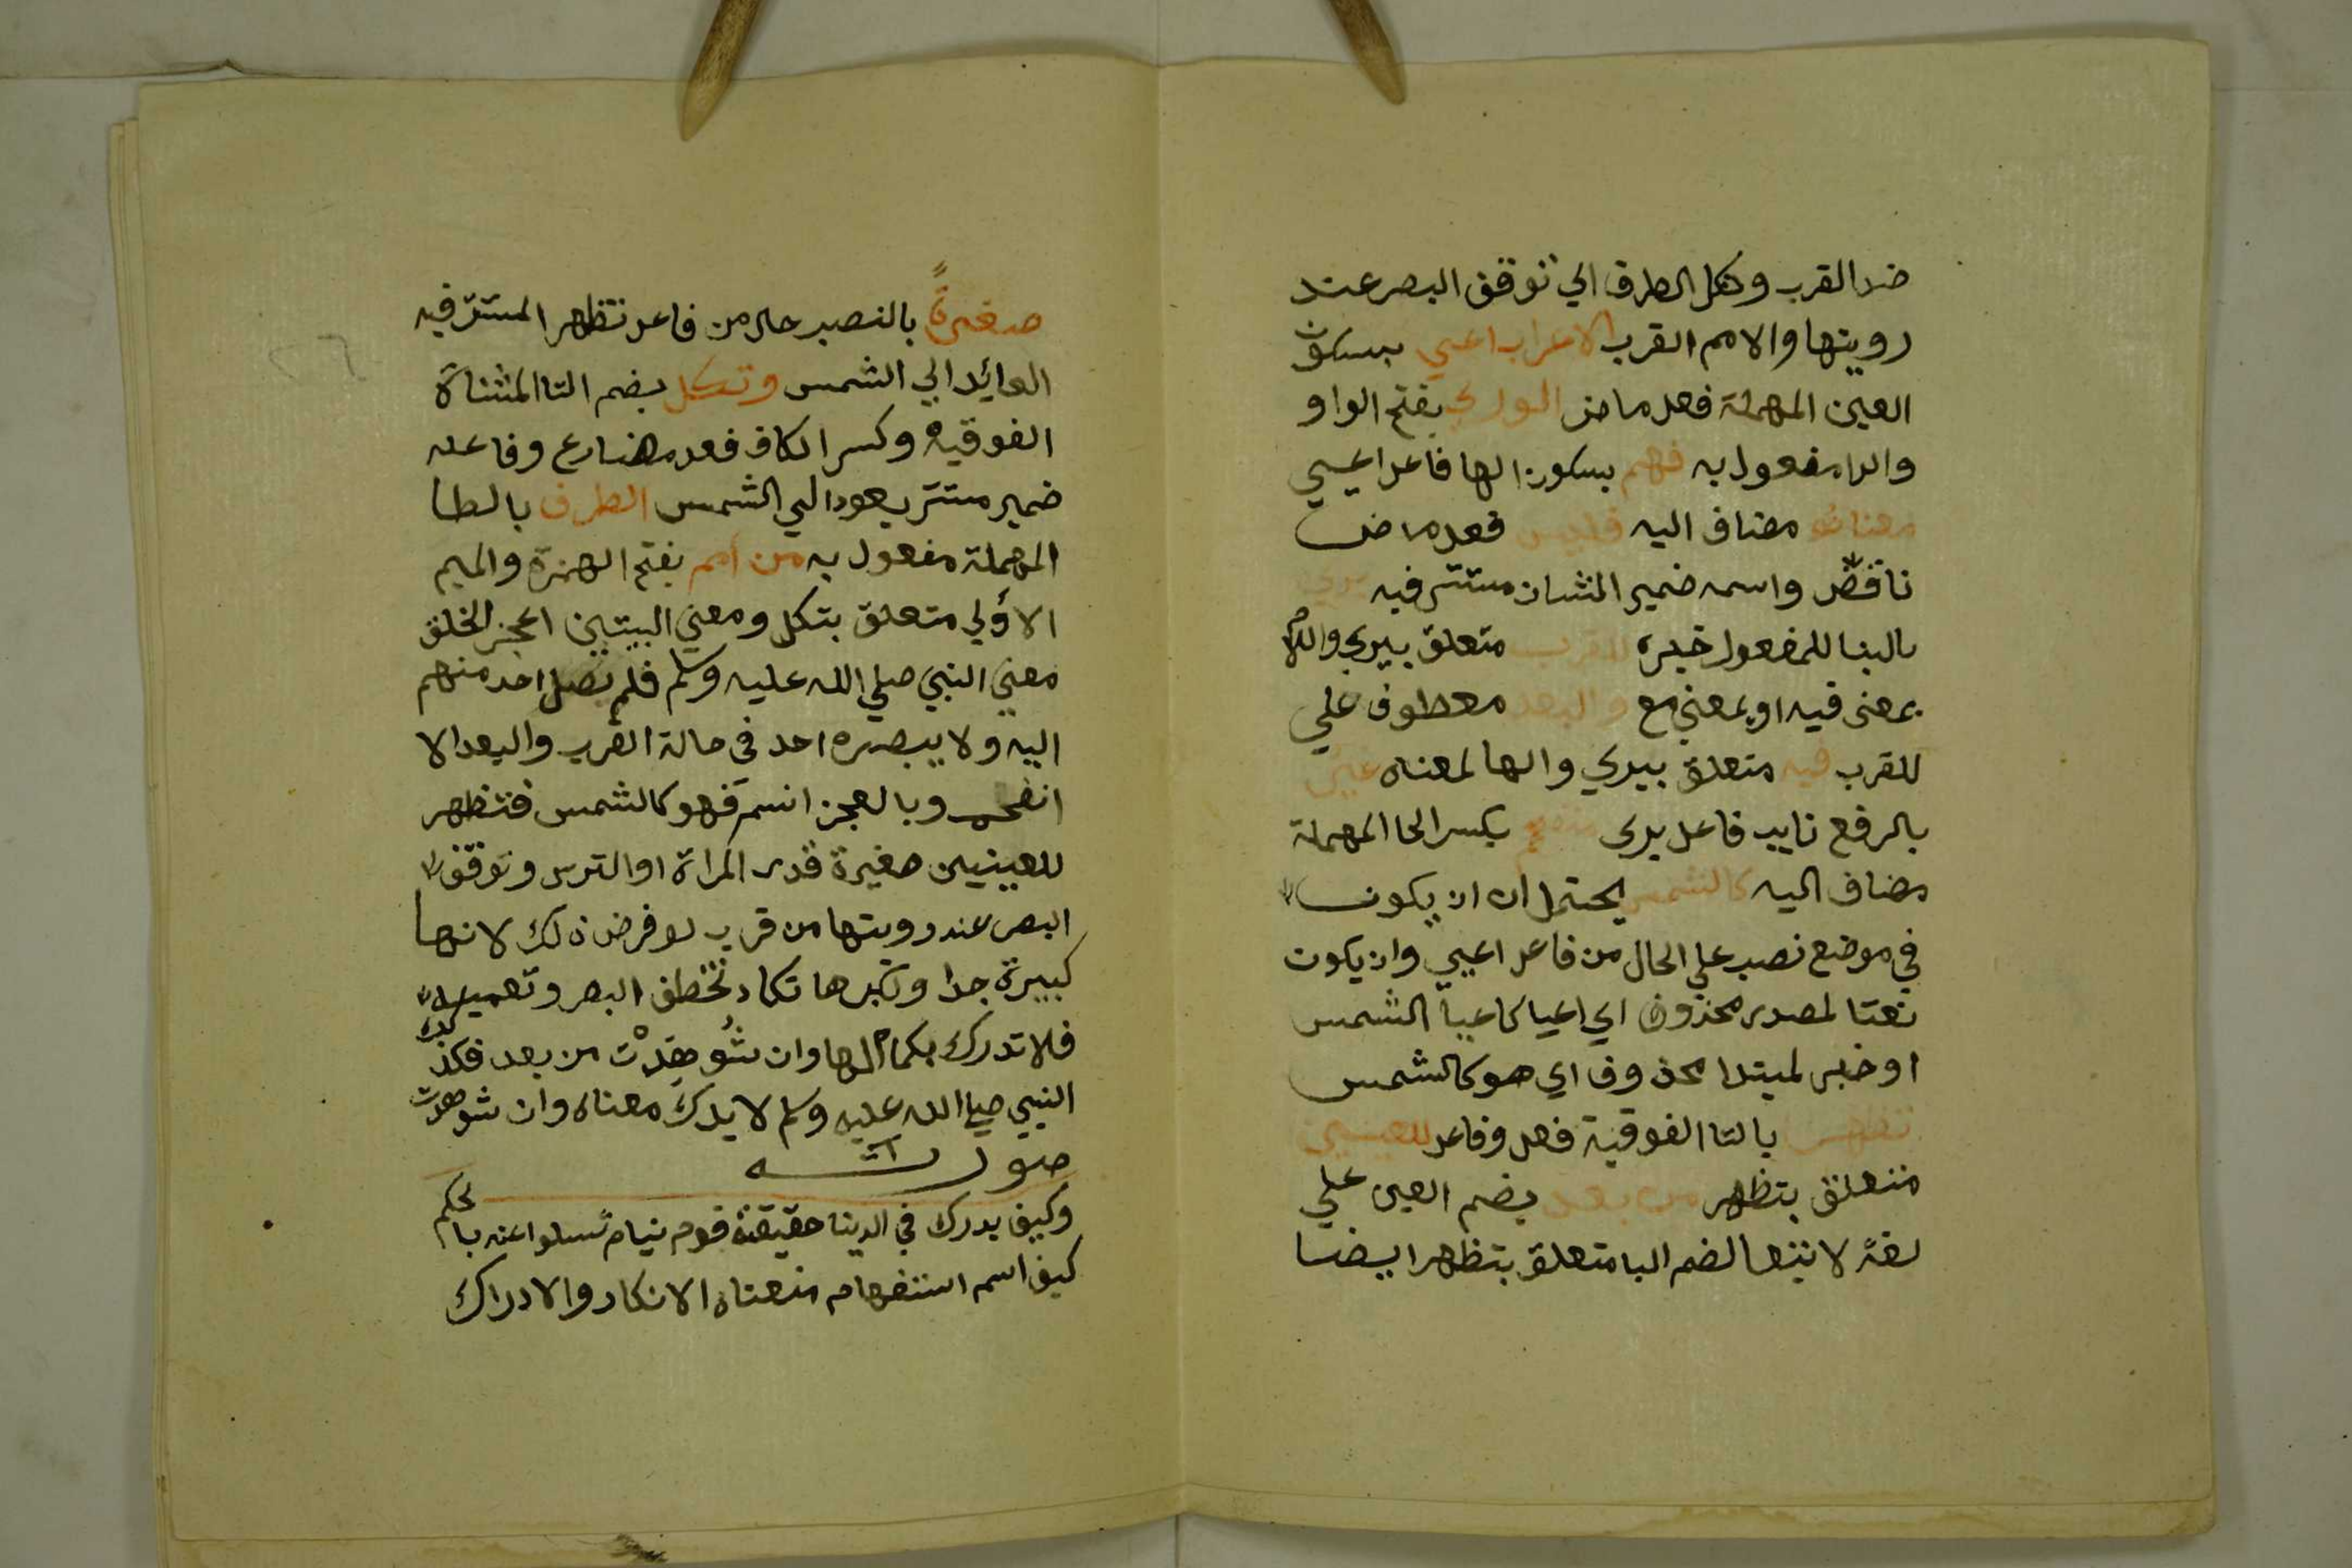 ضد القرب وتكل الطرف اي توقف البصر عند
رويتها والامم القرب الاعراب اعيي بسكون
العين المهملة فعل ماض الوري بفتح الواو
والرا مفعول به فهم بسكون الها فاعل اعيي
معناه مضاف اليه فليس فعل ماض
ناقص واسمه ضمير الشان مستتر فيه يري
بالبنا للمفعول خبره للقرب متعلق بيري واللام
بمعنى فيه او بمعني مع والبعد معطوف علي
للقرب فيه متعلق بيري والها لمعناه غير
بالرفع نايب فاعل يري منفحم بكسر الحا المهملة
مضاف اليه كالشمس يحتمل ان ان يكون
في موضع نصب علي الحال من فاعل اعيي وان يكون
نعتا لمصدر محذوف اي اعيا كاعيا الشمس
او خبر لمبتدا محذوف اي هو كالشمس
تظهر بالتا الفوقية فعل وفاعل للعينين
متعلق بتظهر من بعد بضم العين علي
لغة لاتباعها لضم البا متعلق بتظهر ايضا
صغيرةً بالنصب حال من فاعل تظهر المستتر فيه
العائد الي الشمس وتكل بضم التا المثناة
الفوقية وكسر الكاف فعل مضارع وفاعله
ضمير مستتر يعود الي الشمس الطرف بالطا
المهملة مفعول به من أمم بفتح الهمزة والميم
الاولي متعلق بتكل ومعني البيتين اعجز الخلق
معني النبي صلي الله عليه وسلم فلم يصل احد منهم
اليه ولا يبصره احد في حالة القرب والبعد الا
انفحم وبالعجز اتسم فهو كالشمس فتظهر
للعينين صغيرة قدر المراة او الترس وتوقف
البصر عند رويتها من قرب لو فرض ذلك لانها
كبيرة جدا وكبرها تكاد تخطف البصر وتعميه
فلا تدرك بكمالها وان شُوهِدْت من بعد فكذلك
النبي صلي الله عليه وسلم لا يدرك معناه وان شوهدت
صورته
وكيف يدرك في الدينا حقيقته قوم نيام تسلوا عنه بالحكم
كيف اسم استفهام معناه الانكار والادراك